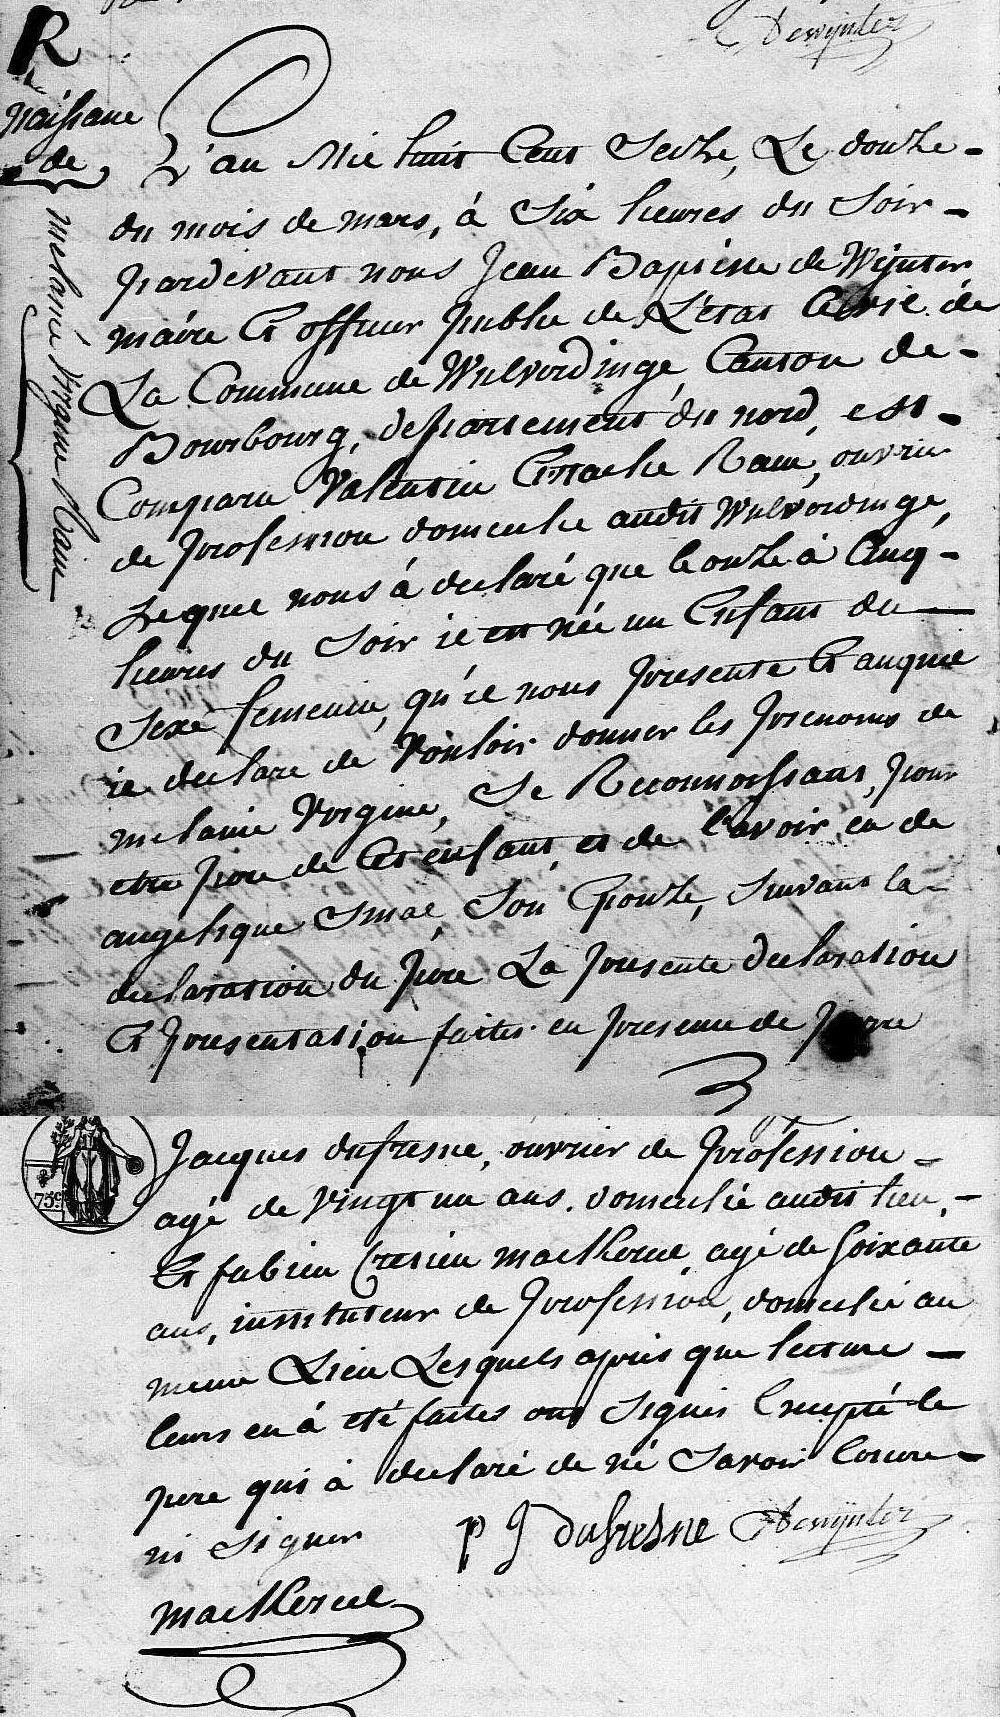 Dewynter
R
naissance
de
melanie Virginie Rain
L'an Mil huit Cent Seize, Le douze -
du mois de mars, à Six heures du Soir -
pardevant nous Jean Baptiste de Wynter
maire Et officier public de L'état Civil de
La Commune de Wulverdinge, Canton de -
Bourbourg, departement du nord, est -
Comparu Valentin Ustache Rain, ouvrier
de profession domicilié audit Wulverdinge,
Lequel nous à declaré que le onze à Cinq -
heures du Soir il est née un Enfant du
Sexe femenin, qu'il nous presente Et auquel
il declare de Vouloir donner les prenoms de
melanie Virginie, Se Reconnoissant, pour
etre pere de Cet enfant, et de l'avoir eu de
angelique Smal, Son Epouze, Suivant la -
declaration du pere La presente declaration
Et presentation faites en presence de pierre
Jacques dufresne, ouvrier de profession -
agé de Vingt un ans, domicilié audit lieu, -
Et fabien mackereel, agé de Soixante
ans, instituteur de profession, domicilié au
meme Lieu Lesquels après que lecture -
leurs en á eté faites ont Signés Excepté le
pere qui à declaré de né Savoir Ecrire -
ni Signer
p J dufresne Dewynter
mackereel
75c